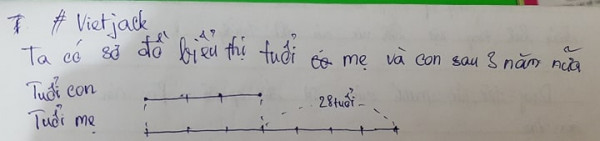 I # Vietjack
Ta có sơ đồ biểu thị tuổi mẹ và con sau 3 năm nữa
Tuổi con
28 tuổi
Tuổi mẹ